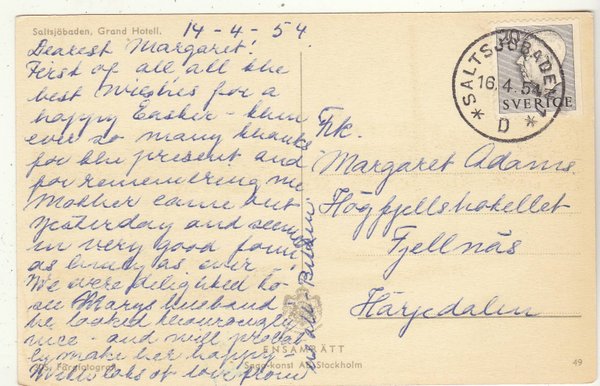 Saltsjöbaden, Grand Hotell.
14-4-54.
Dearest Margaret!
First of all all the
best wishes for a
happy Easter - then
ever so many thanks
for the present and
for remembering me
Mother came out
yesterday and seems
in very good form,
as busy as ever!
We were delighted to
see Marys husband -
he looked thouroughly
nice - and will probab
ly make her happy -
With lots of love from
us all -
SALTSJÖBADEN 1
16.4.54
D
SVERIGE
Frk.
Margaret Adams.
Högfjellshotellet
Fjellnäs
Härjedalen
ENSAMRÄTT
Foto: Färgfotograf
Saga-konst AB, Stockholm
49